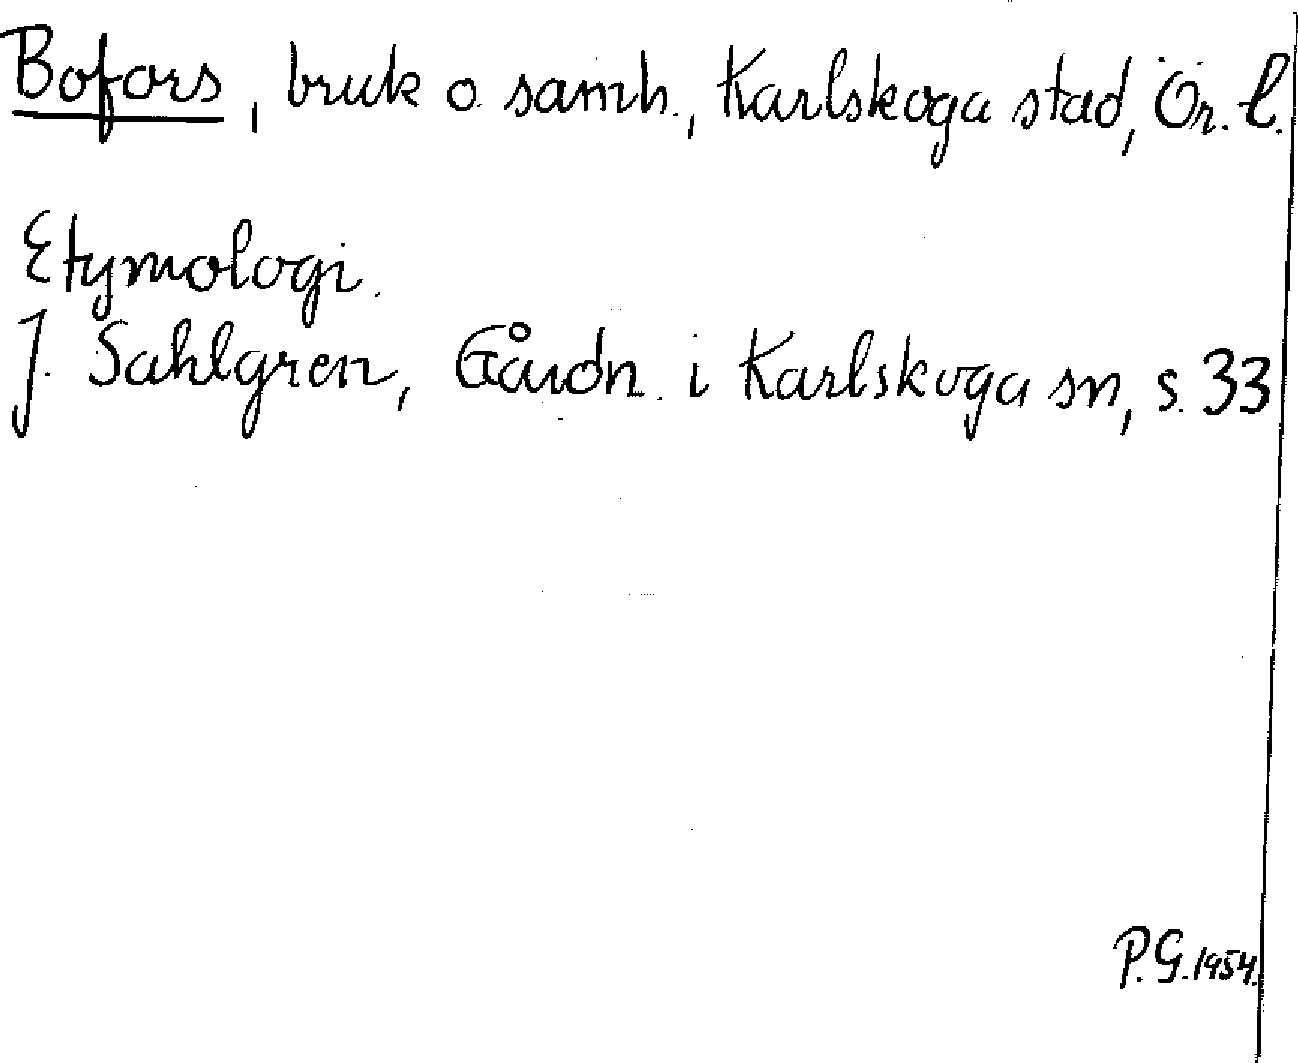 Bofors, bruk o. samh., Karlskoga stad, Ör. l.
Etymologi.
J. Sahlgren, Gårdn. i Karlskoga sn, s. 33
P.G. 1954.